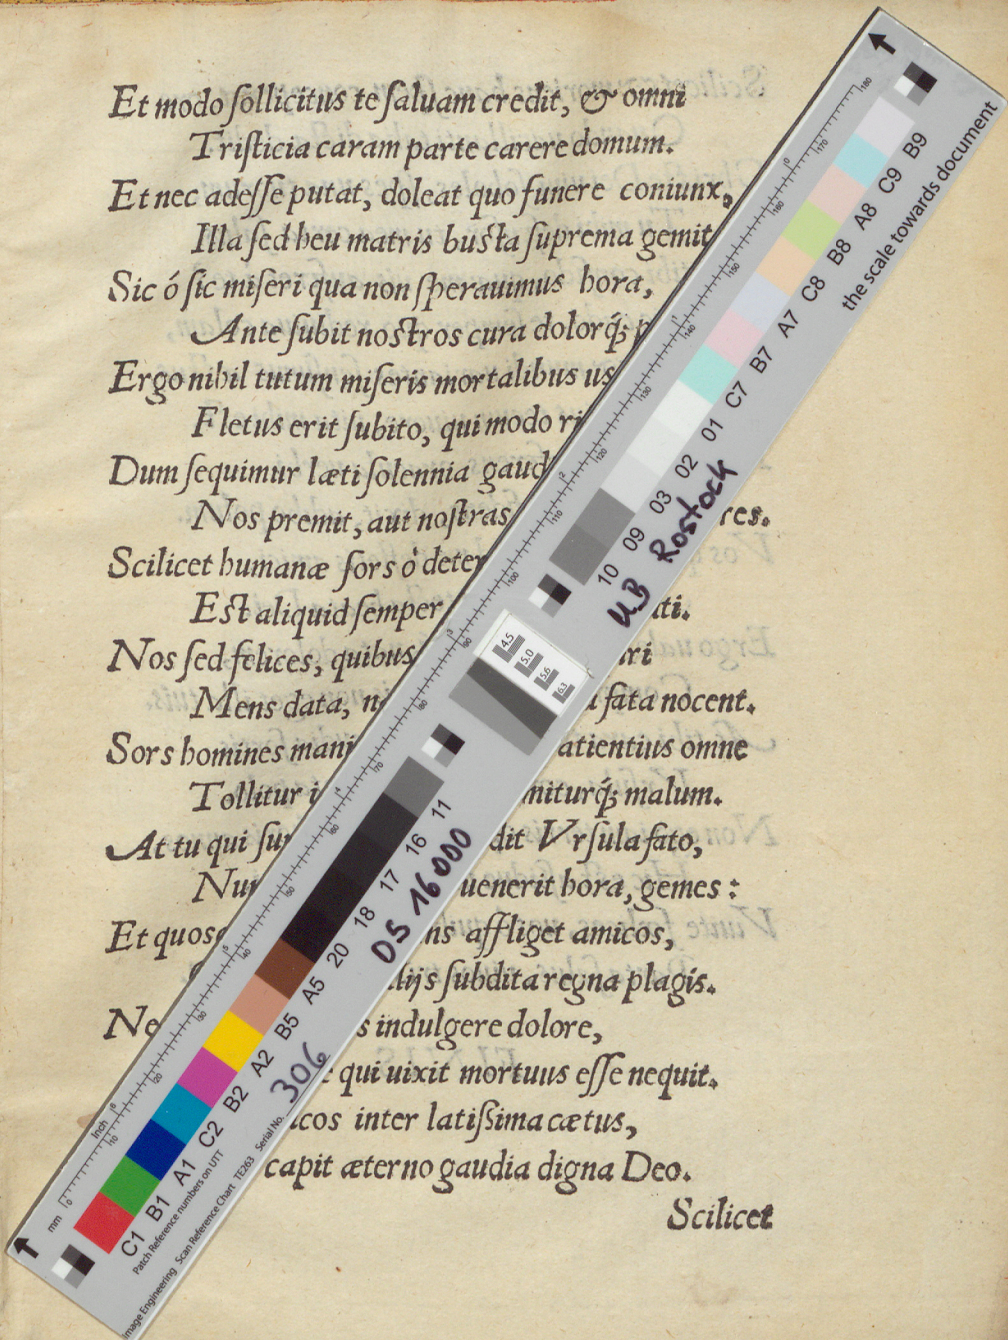 Et modo ſollicitus te ſaluam credit, & omni
Triſticia caram parte carere domum.
Et nec adeſſe putat, doleat quo funere coniunx,
Illa ſed heu matris buſta ſuprema gemit
Sic ó ſic miſeri qua non ſperauimus hora,
Ante ſubit noſtros cura dolorq́;
Ergo nihil tutum miſeris mortalibus us
Fletus erit ſubito, qui modo ri
Dum ſequimur læti ſolennia gaud
Nos premit, aut noſtras res.
Scilicet humanæ ſors ò deter
Eſt aliquid ſemper ti.
Nos ſed felices, quibus ri
Mens data, n fata nocent.
Sors homines mani atientius omne
Tollitur i miturq́; malum.
At tu qui ſu dit Vrſula fato,
Nu uenerit hora, gemes:
Et quos ns affliget amicos,
lijs ſubdita regna plagis.
Ne s indulgere dolore,
qui uixit mortuus eſſe nequit.
icos inter latiſsima cætus,
capit æterno gaudia digna Deo.
Scilicet
the scale towards document
B9
C9
A8
B8
C8
A7
B7
C7
01
02
03
09
10
UB Rostock
4.5
5.0
5.6
6.3
11
16
17
18
20
A5
B5
A2
B2
C2
A1
B1
C1
DS 16000
Patch Reference numbers on UTT
Image Engineering Scan Reference Chart TE263 Serial No. 306
mm
0 10 20 30 40 50 60 70 80 90 100 110 120 130 140 150 160 170 180
Inch
6 5 4 3 2 1 0